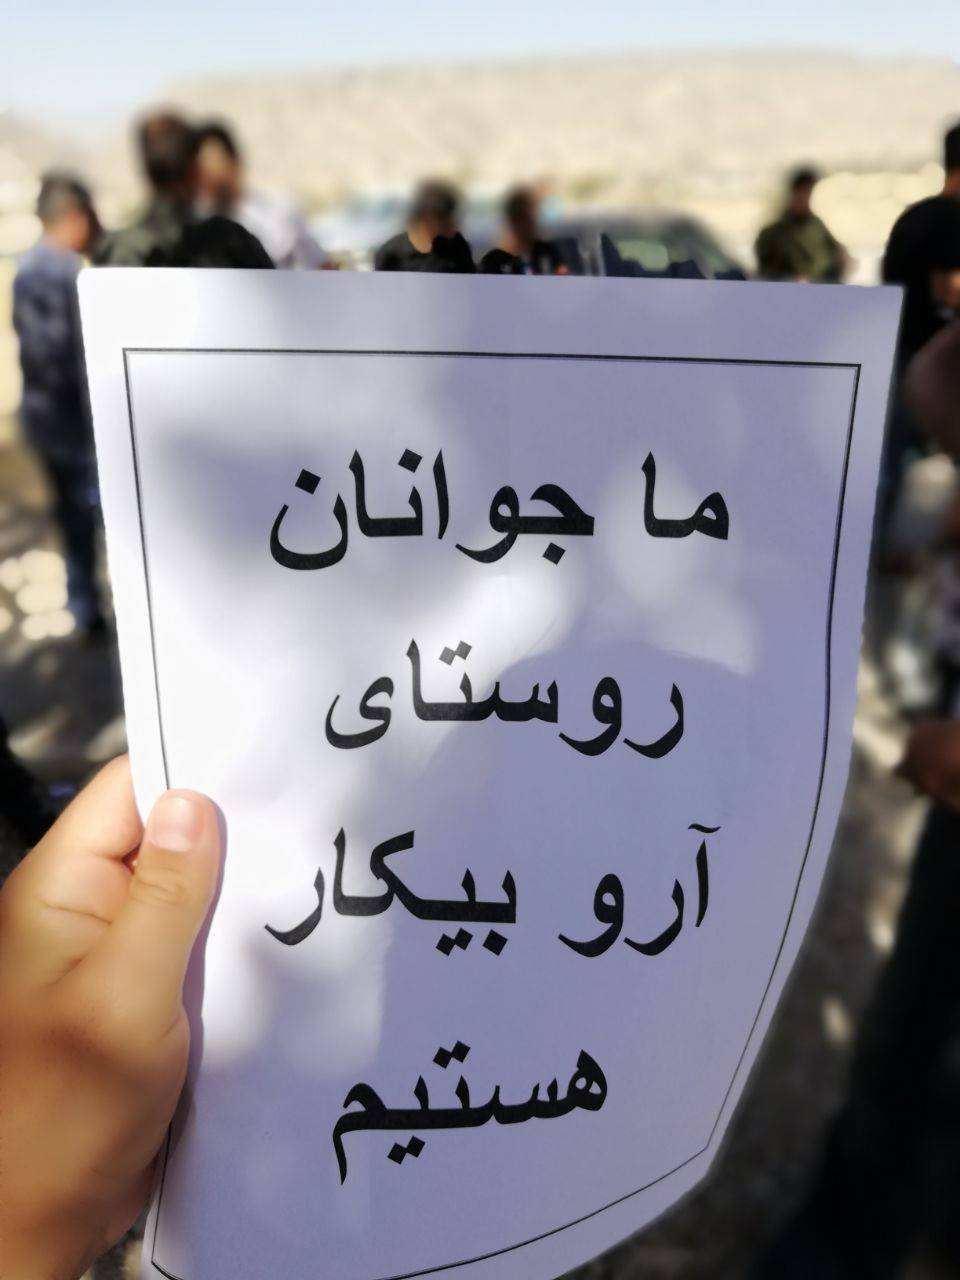 ما جوانان
روستای
آرو بیکار
هستیم